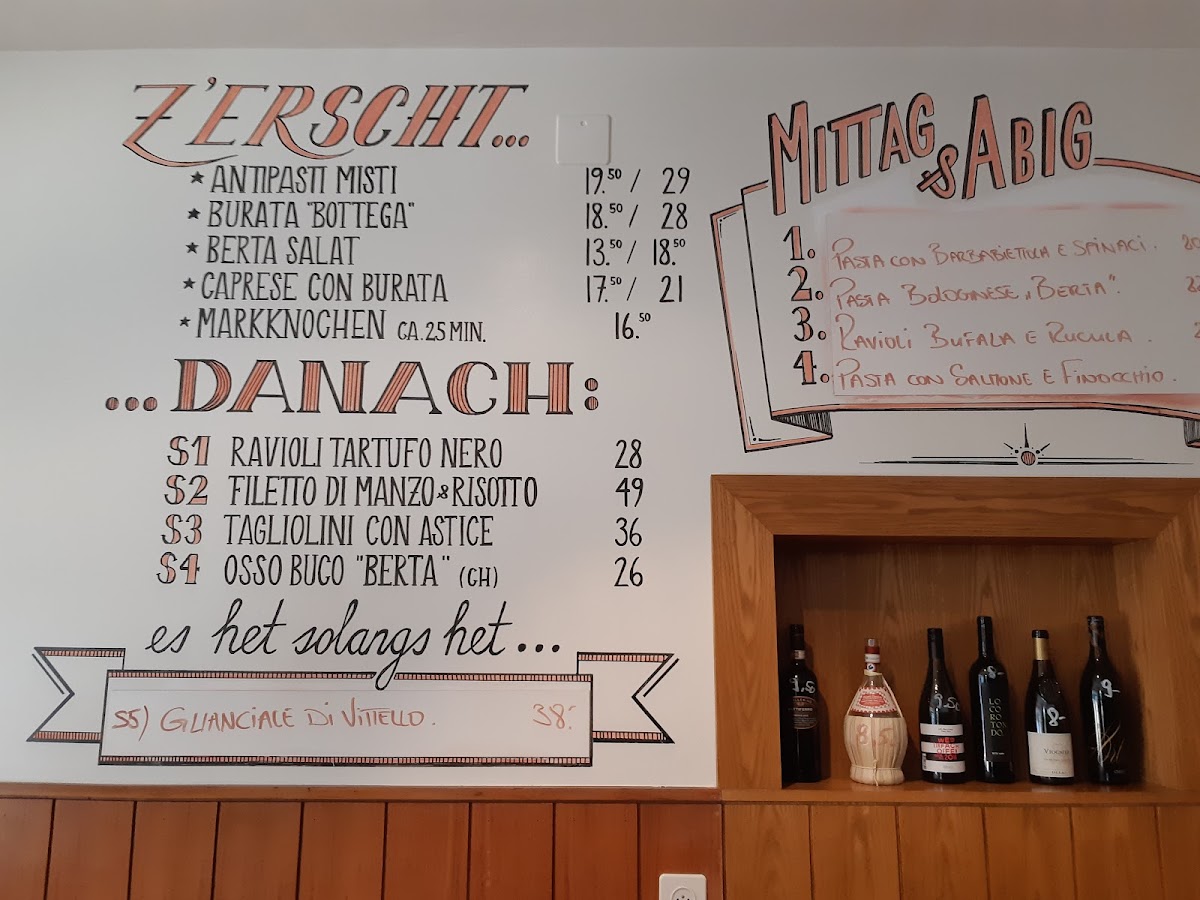 Z'ERSCHT...
* ANTIPASTI MISTI 19.50 / 29
* BURATA "BOTTEGA" 18.50 / 28
* BERTA SALAT 13.50 / 18.50
* CAPRESE CON BURATA 17.50 / 21
* MARKKNOCHEN CA. 25 MIN. 16.50
...DANACH:
S1 RAVIOLI TARTUFO NERO 28
S2 FILETTO DI MANZO & RISOTTO 49
S3 TAGLIOLINI CON ASTICE 36
S4 OSSO BUCO "BERTA" (CH) 26
es het solangs het...
S5) GUANCIALE DI VITELLO. 38.-
MITTAG & ABIG
1. PASTA CON BARBABIETOLA E SPINACI.
2. PASTA BOLOGINESE „BERTA".
3. RAVIOLI BUFALA E RUCULA.
4. PASTA CON SALMONE E FINOCCHIO.
8.5
8.-
LO
CO
RO
TON
DO
8.-
9.-